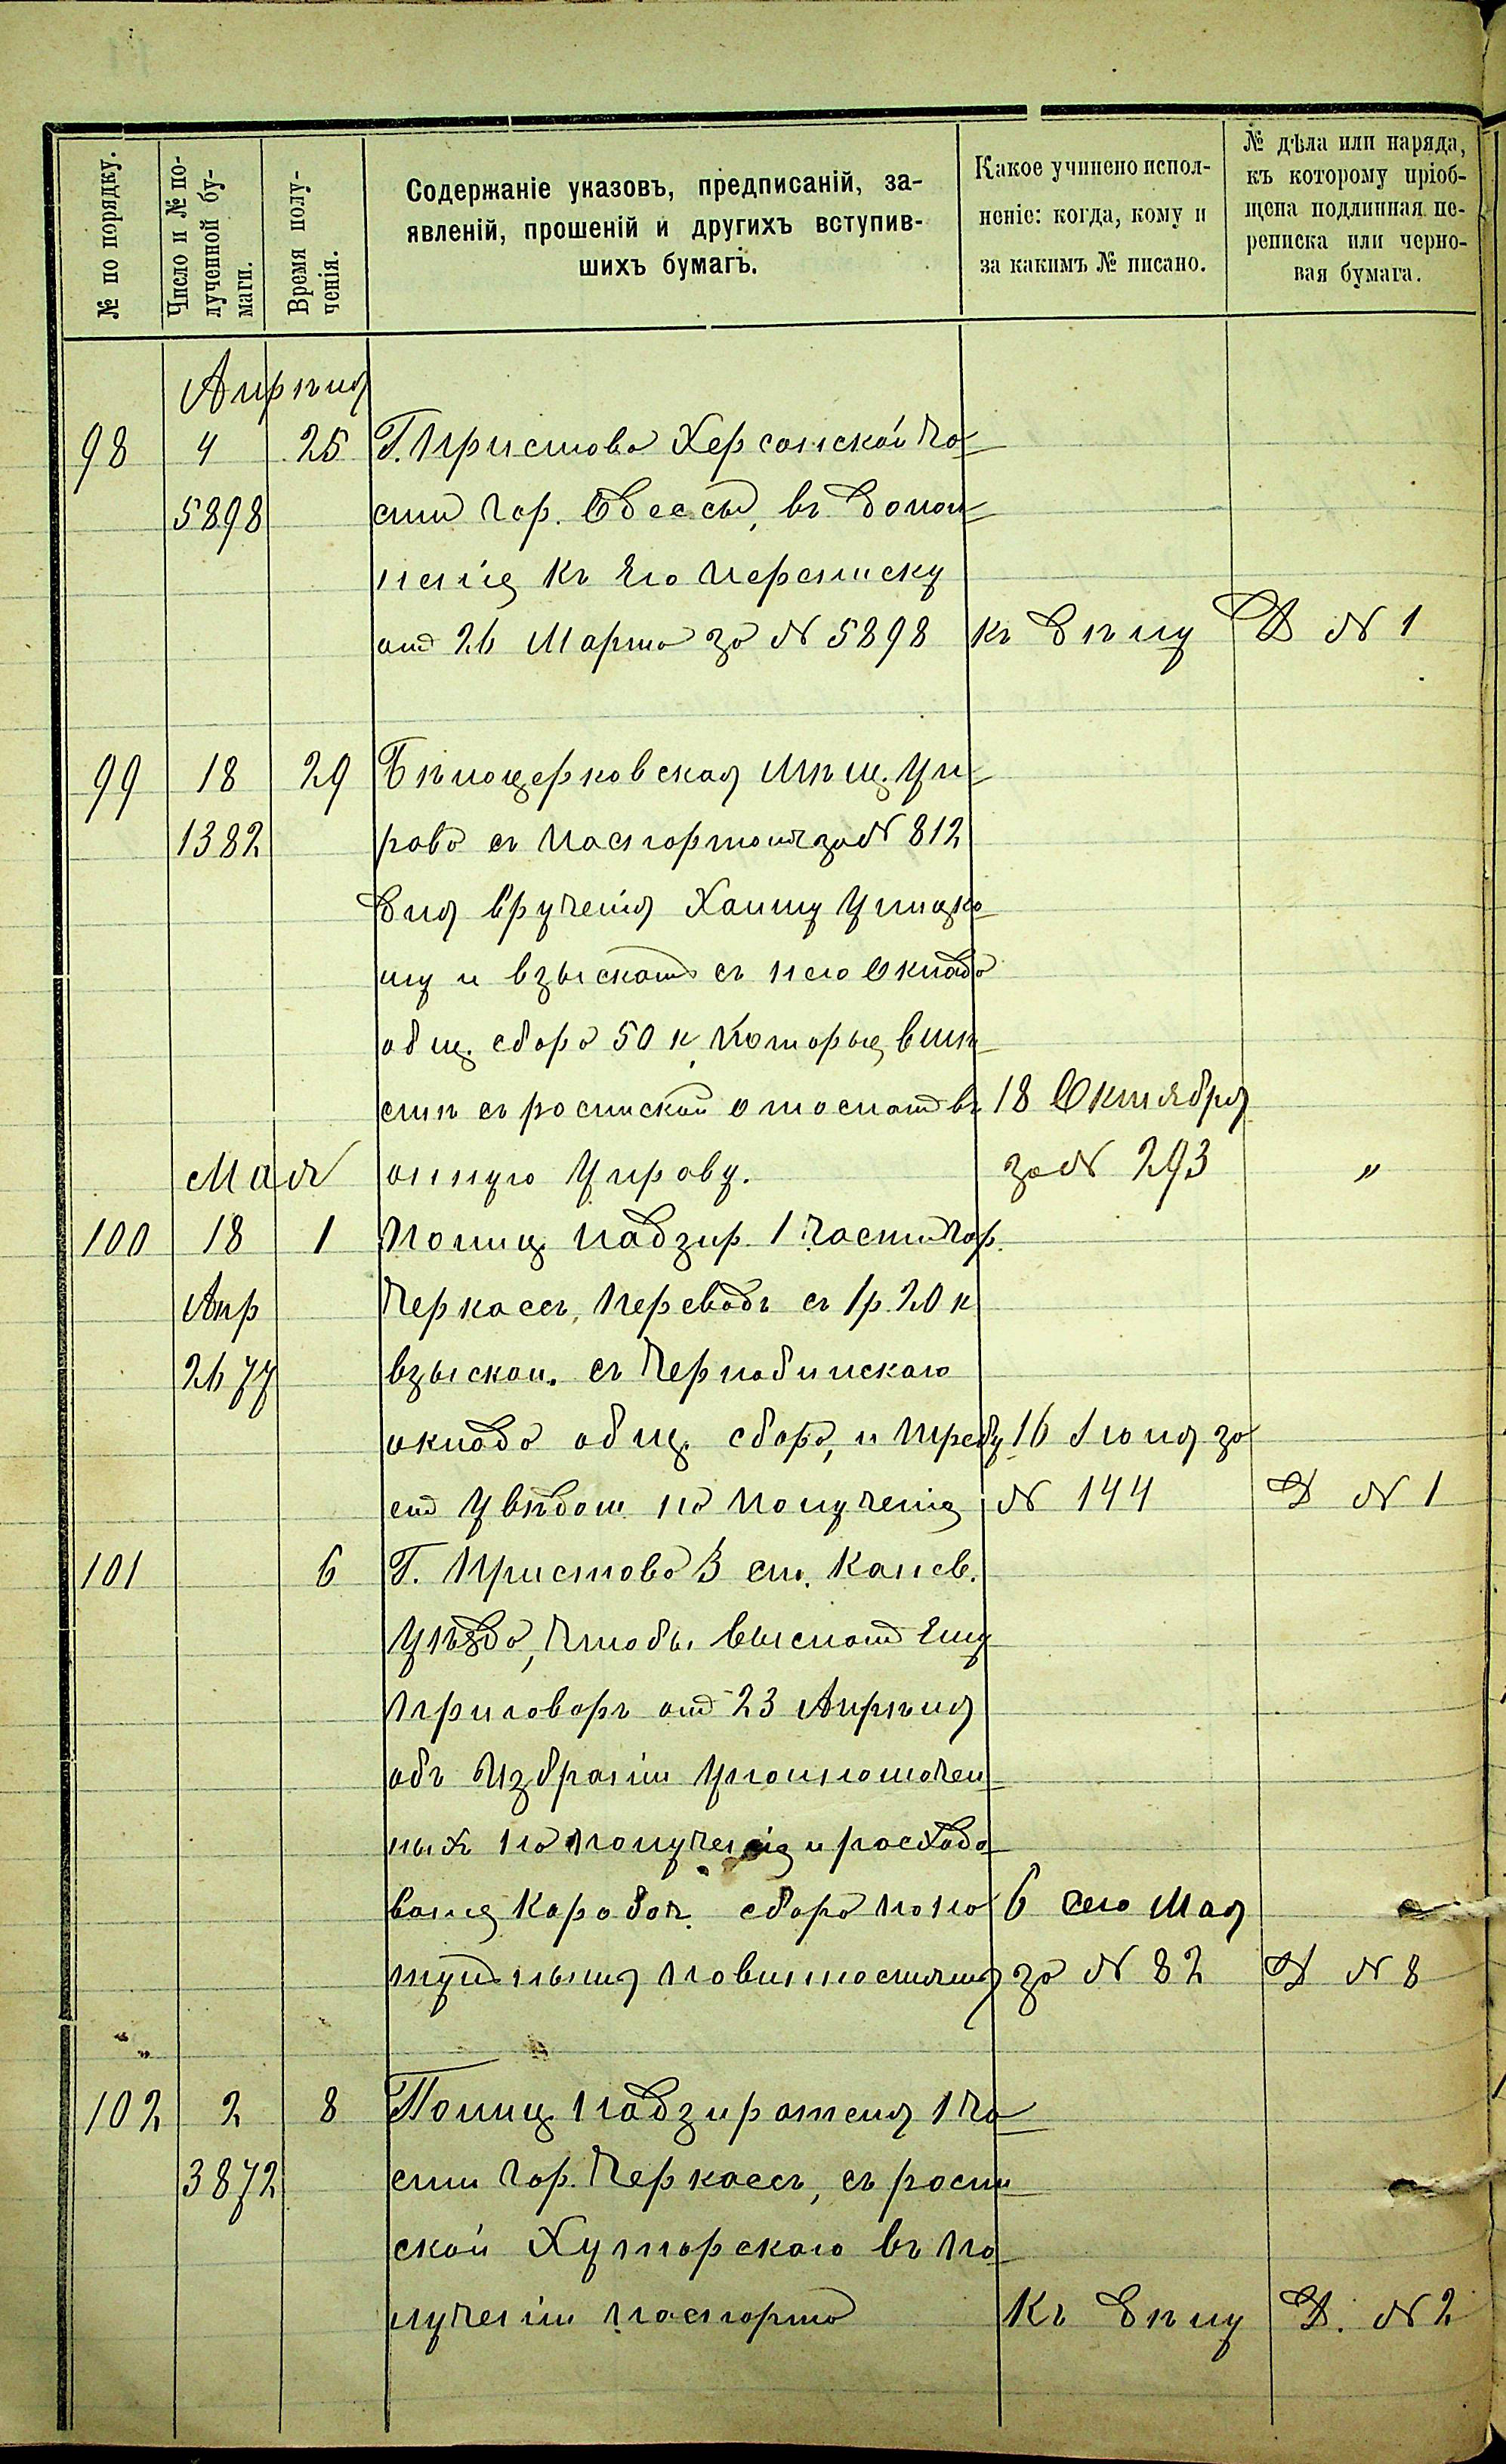 № по порядку.
Число и № по-
лученной бу-
маги.
Время полу-
ченія.
Содержаніе указовъ, предписаній, за-
явленій, прошеній и другихъ вступив-
шихъ бумагъ.
Какое учинено испол-
неніе: когда, кому и
за какимъ № писано.
№ дѣла или наряда,
къ которому пріоб-
щена подлинная пе-
реписка или черно-
вая бумага.
Апрѣля
98 4 25 Г. Пристава Херсонской ча-
5898 сти гор. Одессы, въ допол-
неніе къ его переписку
отъ 26 Марта за № 5898 къ дѣлу Д № 1
99 18 29 Бѣлоцерковская Мѣщ. Уп-
1382 рава съ паспортомъ за № 812
для врученія Хаиму
му и взыскать съ него оклада
общ. сбора 50 к. которые вмѣ-
стѣ съ роспиской отослать въ 18 Октября
Мая онную Управу. за № 293 "
100 18 1 Полиц. надзир. 1 части гор.
Апр Черкассъ, переводъ съ 1 р. 20 к
2677 взыскан. съ Чернобильскаго
оклада общ. сбора, и требу 16 Іюня за
етъ увѣдом. по полученіе № 144 Д № 1
101 6 Г. Пристава 3 ст. Канев.
уѣзда, чтобы выслать ему
приговоръ отъ 23 Апрѣля
объ избраніи уполномочен-
ныхъ по полученіе и расходо-
ваніе коробоч. сбора по на 6 сего Мая
туральнымъ повинностямъ за № 82 Д № 8
102 2 8 Полиц надзирателя 1 ча-
3872 сти гор. Черкассъ, съ роспи
ской Хуторскаго въ по-
лученіи паспорта Къ дѣлу Д. № 2